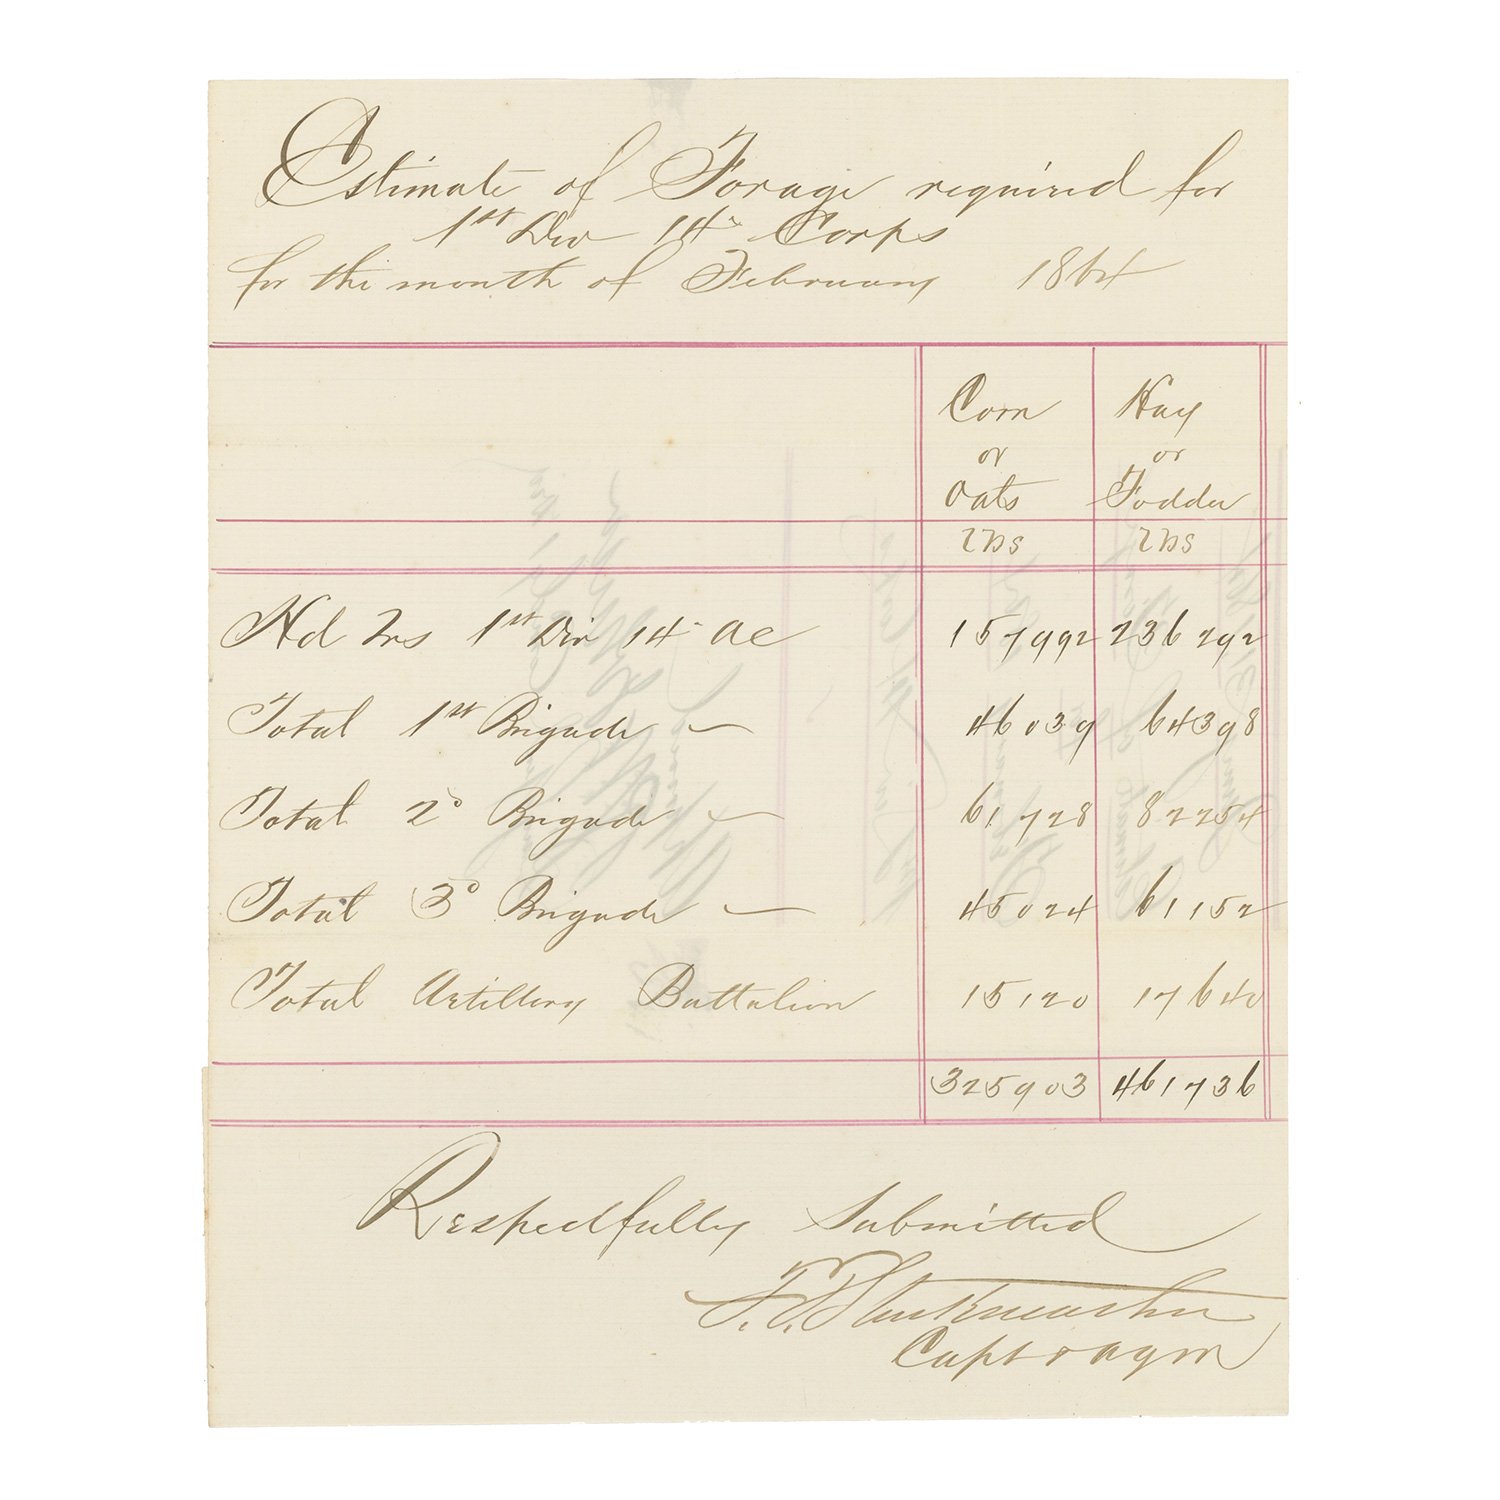 Estimate of Forage required for
1st Div 14" Corps
for the month of February 1864
Corn Hay
or or
Oats Fodder
lbs lbs
Hd Qrs 1st Div 14" AC 157992 236292
Total 1st Brigade — 46039 64398
Total 2d Brigade — 61728 82254
Total 3d Brigade — 45024 61152
Total Artillery Battalion 15120 17640
325903 461736
Respectfully Submitted
Capt & aqm